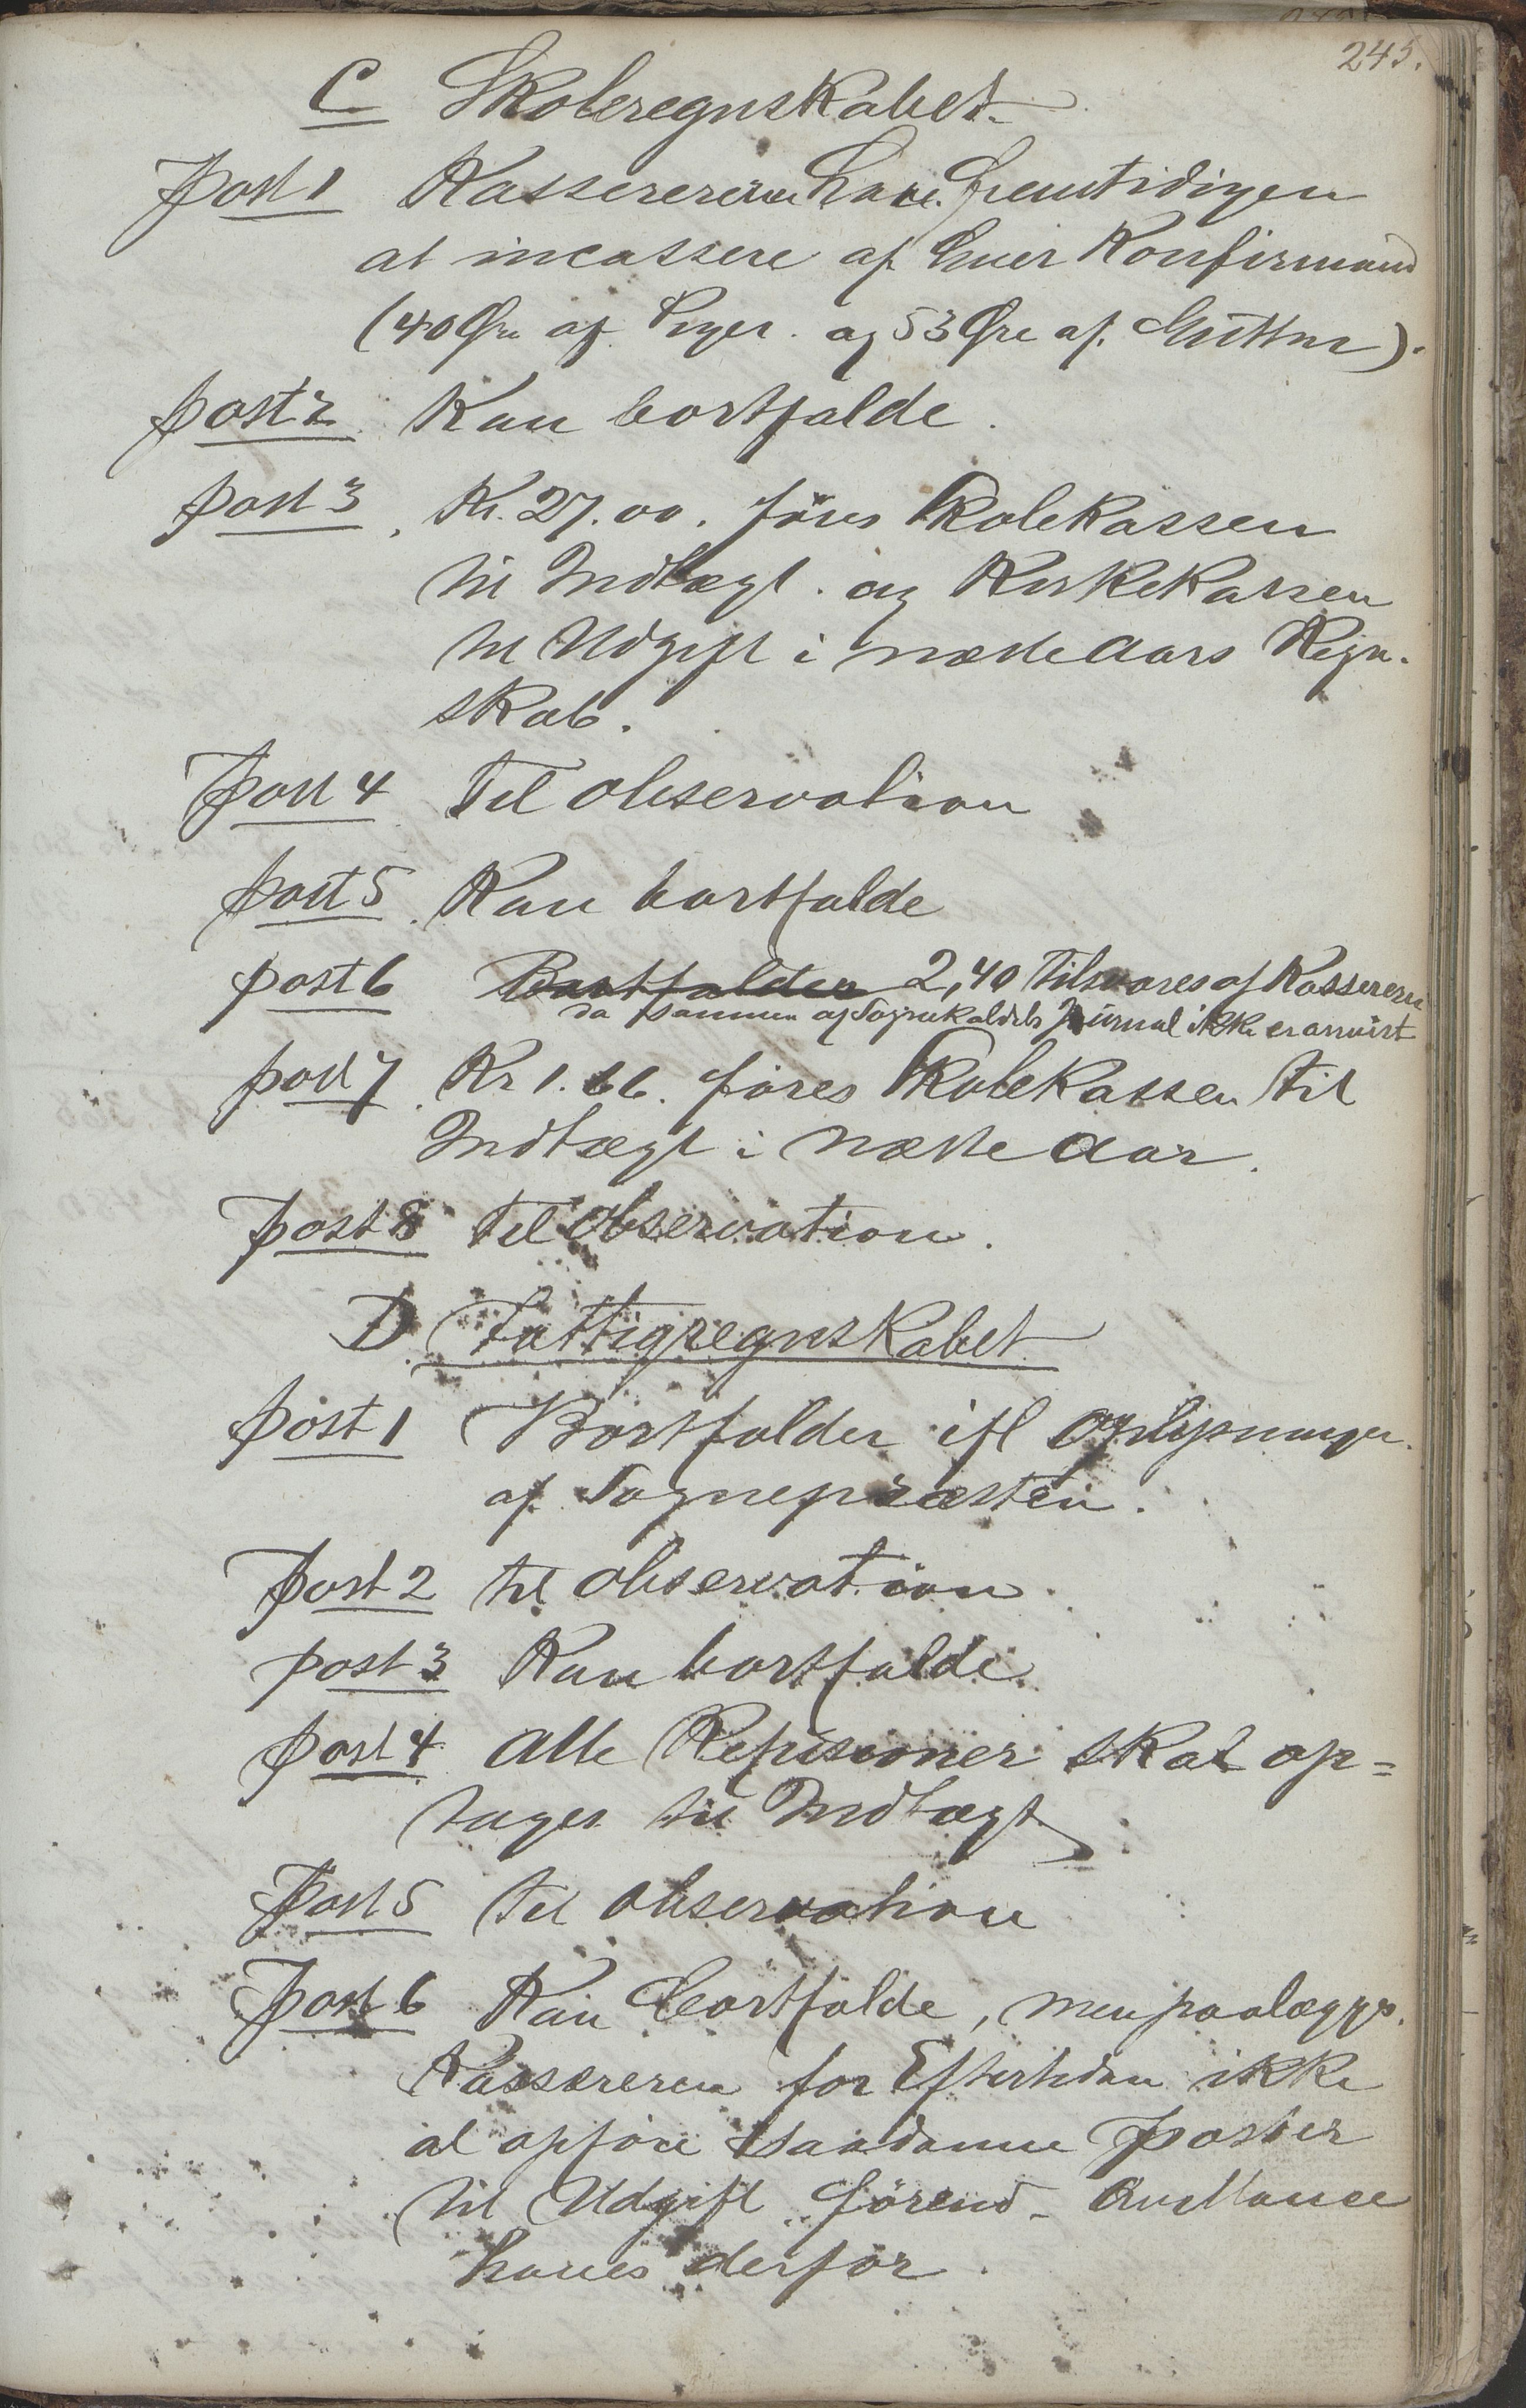 245.
C Skoleregnskabet.
Post 1 Kassereren har fremtidigen
at incassere af hver Konfirmand
(40 Øre af Piger. og 53 Øre af Gutter).
post 2 Kan bortfalde.
post 3. Kr. 27.00. föres Skolekassen
til Indtægt. og Kirkekassen
til Udgift i næste Aars Regn-
skab.
Post 4 Til Observation
post 5 Kan bortfalde
post 6 Bortfalder 2,40 tilsvares af Kassereren
da Summen af Sognekaldets Journal ikke er anvist
post 7 Kr 1.66. föres Skolekassen til
Indtægt i næste Aar.
post 8 Til Observation.
D. Fattigregnskabet
Post 1 Bortfalder ifl Oplysninger
af Sognepræsten.
Post 2 til Observation
post 3 Kan bortfalde.
post 4 Alle Refusioner skal op=
tages til Indtægt
Post 5 til Observation
Post 6 Kan bortfalde, men paalægges.
Kassereren for Eftertiden ikke
at opföre saadanne Poster
til Udgift förend Qvittance
haves derför.